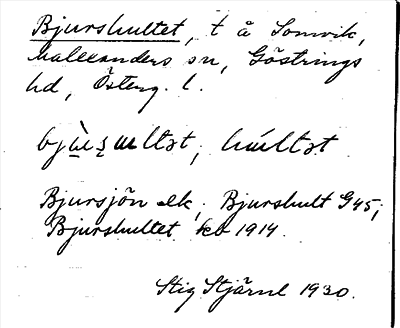 Bjurshultet, t å Somvik,
Malexanders sn, Göstrings
hd, Österg. l.
bjùʂultət, húltət
Bjursjön elk, Bjurshult G45;
Bjurshultet kb 1914.
Stig Stjärne 1930.